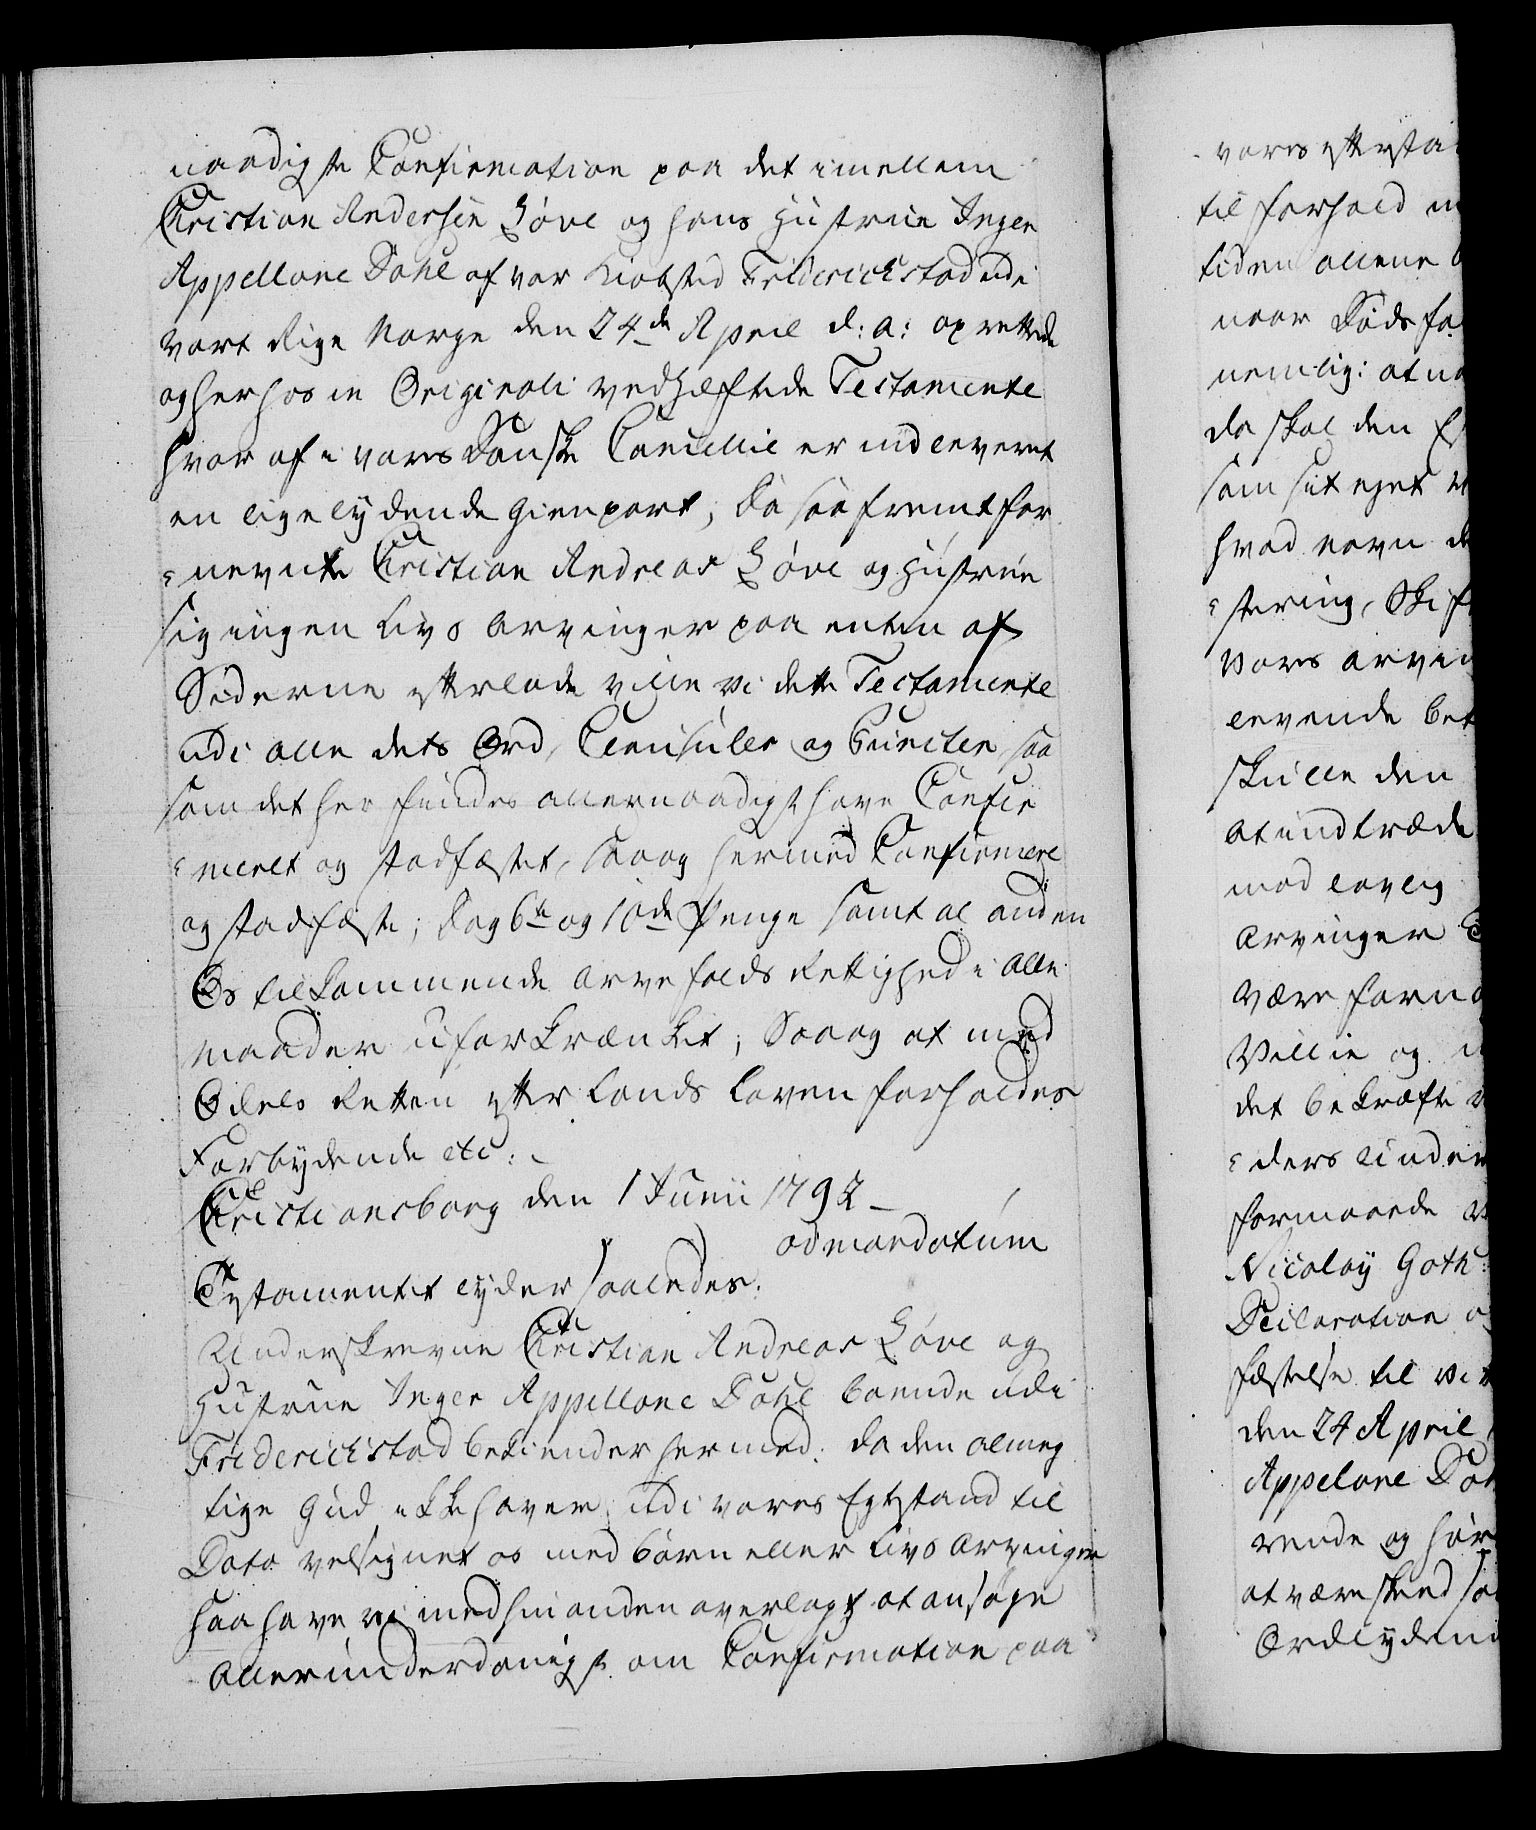 naadigste Confirmation paa det imellem
Christian Andersen Løve og hans Hustrue Inger
Appellone Dahl af vor Kiøbsted Friderichstad udi
vort Rige Norge den 24de April d: a: oprettede
og herhos in Originali vedhæftede Testamente
hvor af i vores Danske Cancellie er indleveret
en ligelydende Gienpart, da saafremt for
nevnte Christian Andreas Løve og Hustrue
sig ingen Livs Arvinger paa enten af
Siderne efterlade ville vi dette Testamente
udi alle dets Ord, Clausuler og Puncter, saa
som det her findes allernaadigst have Confir
meret og stadfæstet, saa og hermed Confirmere
og stadfæste; dog 6te og 10de Penge samt al anden
Os tilkommende Arvefalds Rettighed i alle
maader uforkrænket; Saa og at med
Odels Retten efter Lands Loven forholdes
Forbydende etc:
Christiansborg den 1 Junii 1792
ad mandatum
Testamentet lyder saaledes:
Underskrevne Christian Andreas Løve og
Hustrue Inger Appellone Dahl boende udi
Friderichstad bekiender hermed: da den almeg
tige Gud ikke haver udi vores Egtestand til
Dato velsignet os med Børn eller Livs Arvinger
saa have vi med hinanden overlagt at ansøge
allerunderdanigst om Confirmation paa
vores
til forhold
tiden allene
naar Døds fa
nemlig: at na
da skal den
som sit eget
hvad navn
Skif
vores arvin
levende
skulle den
at indtræde
mod lovlig
Arvinger
være forn
Villie og
det bekræfte
ders under
formaaede
Nicolay Goth
Declaration
fæstelse til
den 24 April
Appelone Dah
rende og hør
at være skeed
Ordlydend